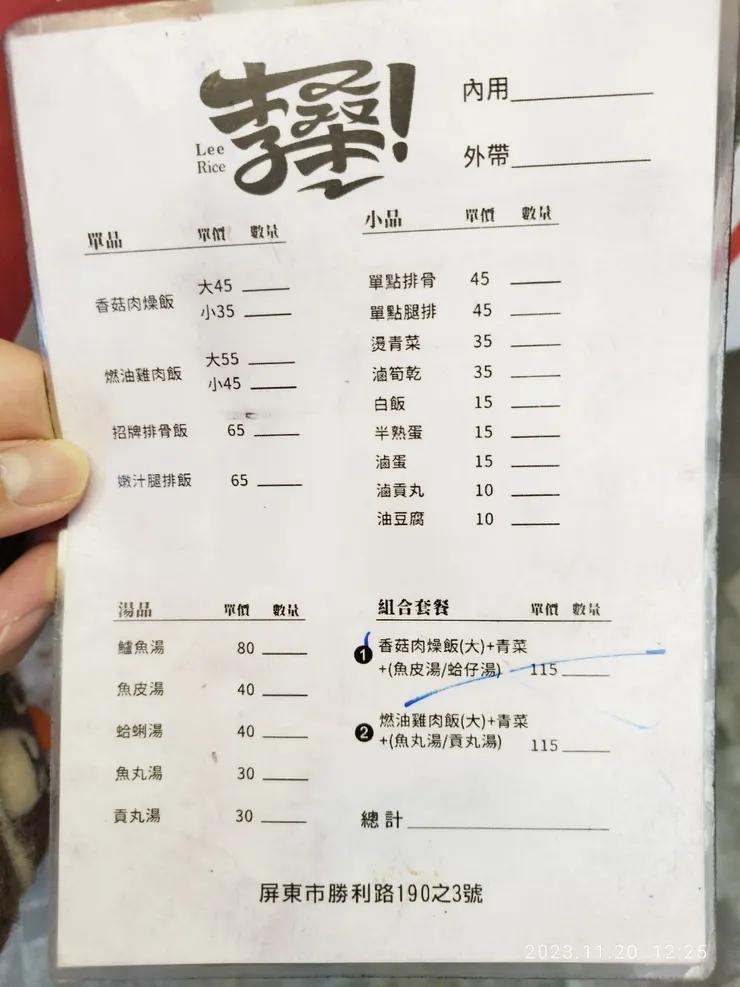 李桑!
Lee
Rice
內用
外帶
單品 單價 數量
香菇肉燥飯 大45
小35
燃油雞肉飯 大55
小45
招牌排骨飯 65
嫩汁腿排飯 65
小品 單價 數量
單點排骨 45
單點腿排 45
燙青菜 35
滷筍乾 35
白飯 15
半熟蛋 15
滷蛋 15
滷貢丸 10
油豆腐 10
湯品 單價 數量
鱸魚湯 80
魚皮湯 40
蛤蜊湯 40
魚丸湯 30
貢丸湯 30
組合套餐 單價 數量
1 香菇肉燥飯(大)+青菜
+(魚皮湯/蛤仔湯) 115
2 燃油雞肉飯(大)+青菜
+(魚丸湯/貢丸湯) 115
總計
屏東市勝利路190之3號
2023.11.20 12:25